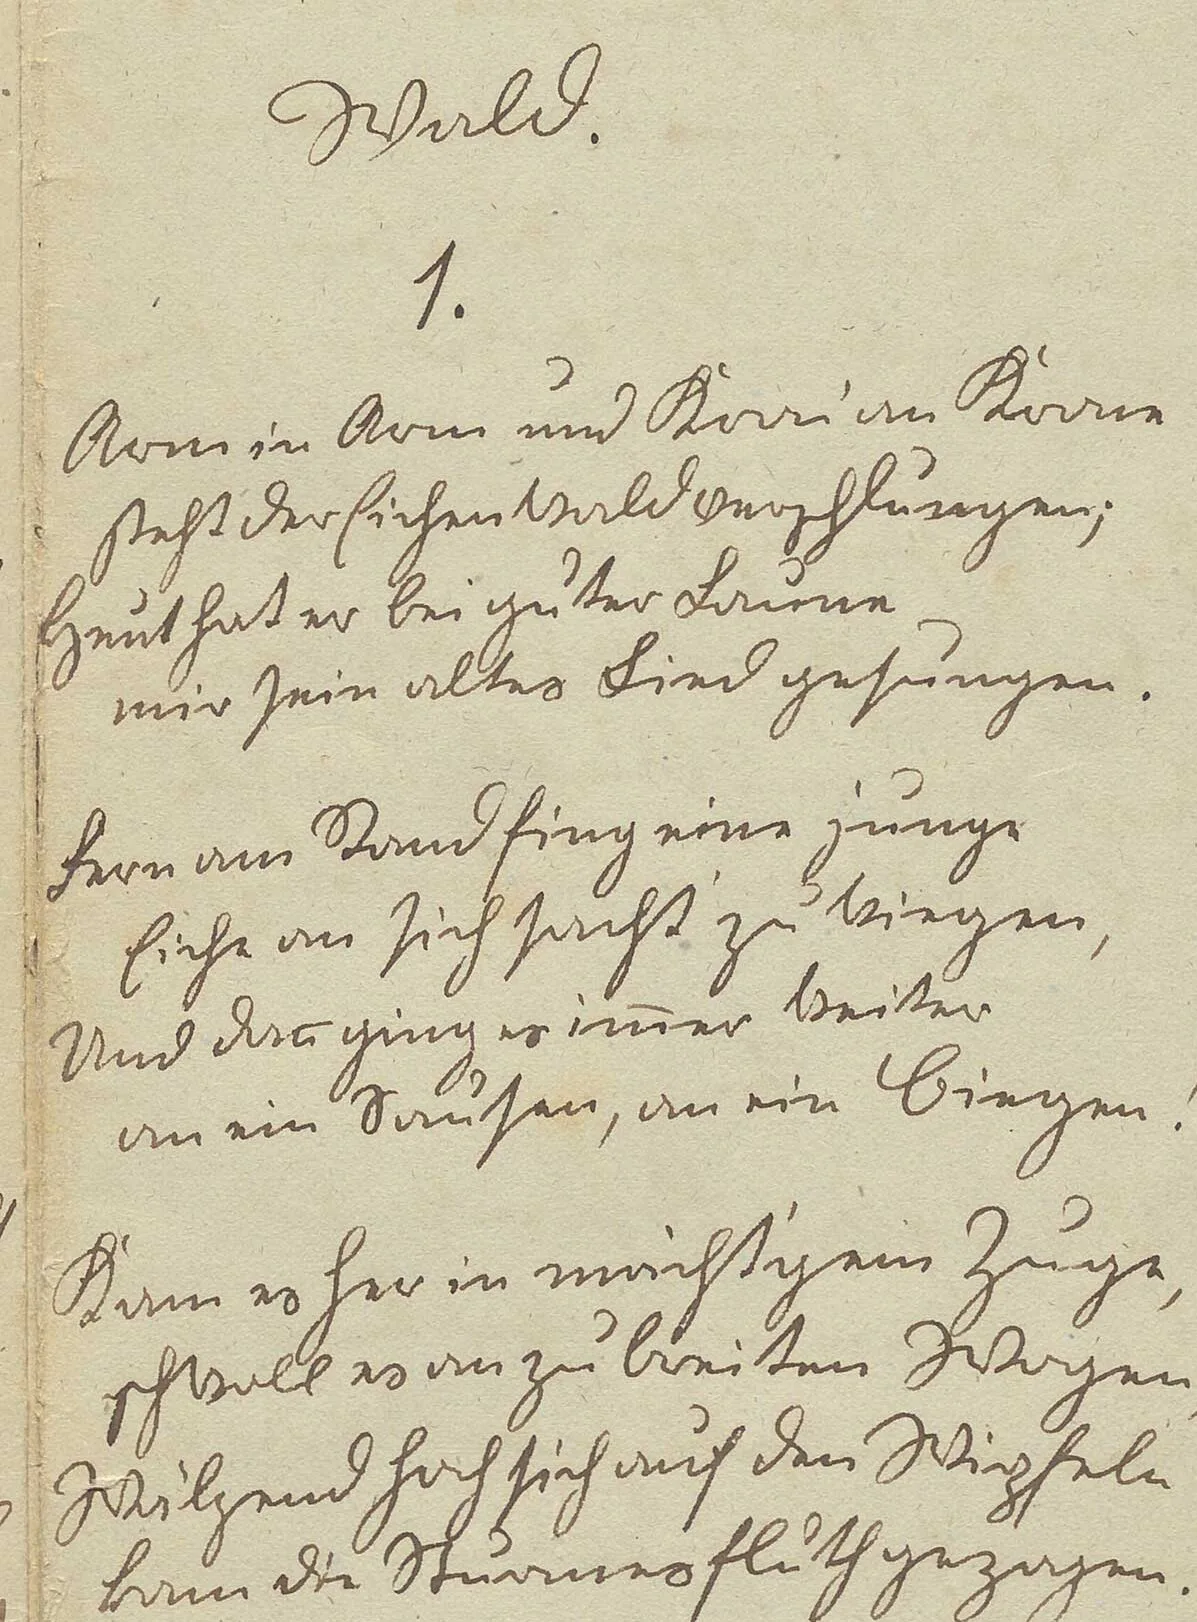 Wald.
1.
Arm in Arm und Kron' an Krone
steht der Eichenwald verschlungen;
Heut hat er bei guter Laune
mir sein altes Lied gesungen.
Fern am Rand fing eine junge
Eiche an sich sacht zu wiegen,
Und dan̄ ging es im̄er weiter
an ein Sausen, an ein Biegen!
Kam es her in mächt'gem Zuge,
schwoll es an zu breiten Wogen,
Wälzend hoch sich auf den Wipfeln
kam die Sturmesfluth gezogen.